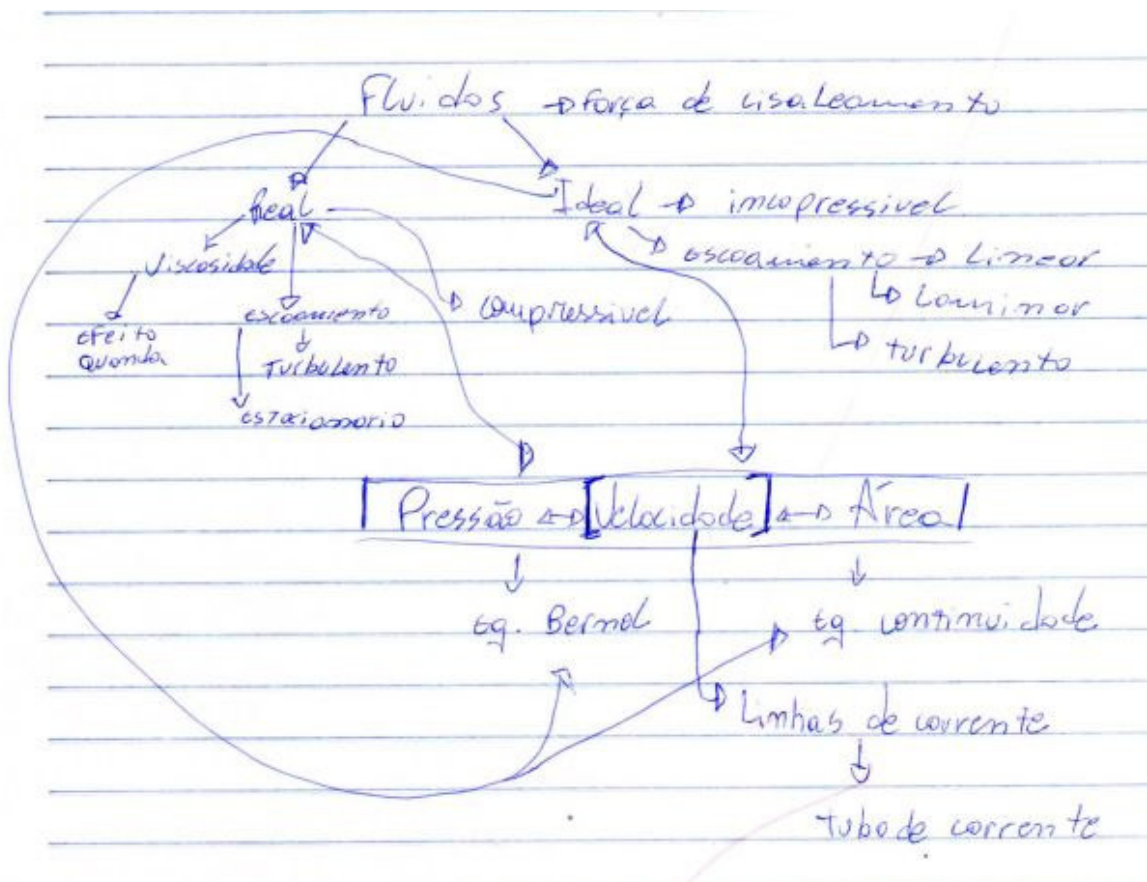 Fluidos → Força de cisaleamento
Real
Ideal → imcopressivel
Viscosidade
escoamento → Linear
Laminar
turbulento
efeito
Quanda
escoamento
Turbulento
estacionario
compressivel
Pressão ↔ [Velocidade] ↔ Área
Eq. Bernol
Eq. continuidade
Linhas de corrente
tubo de corrente